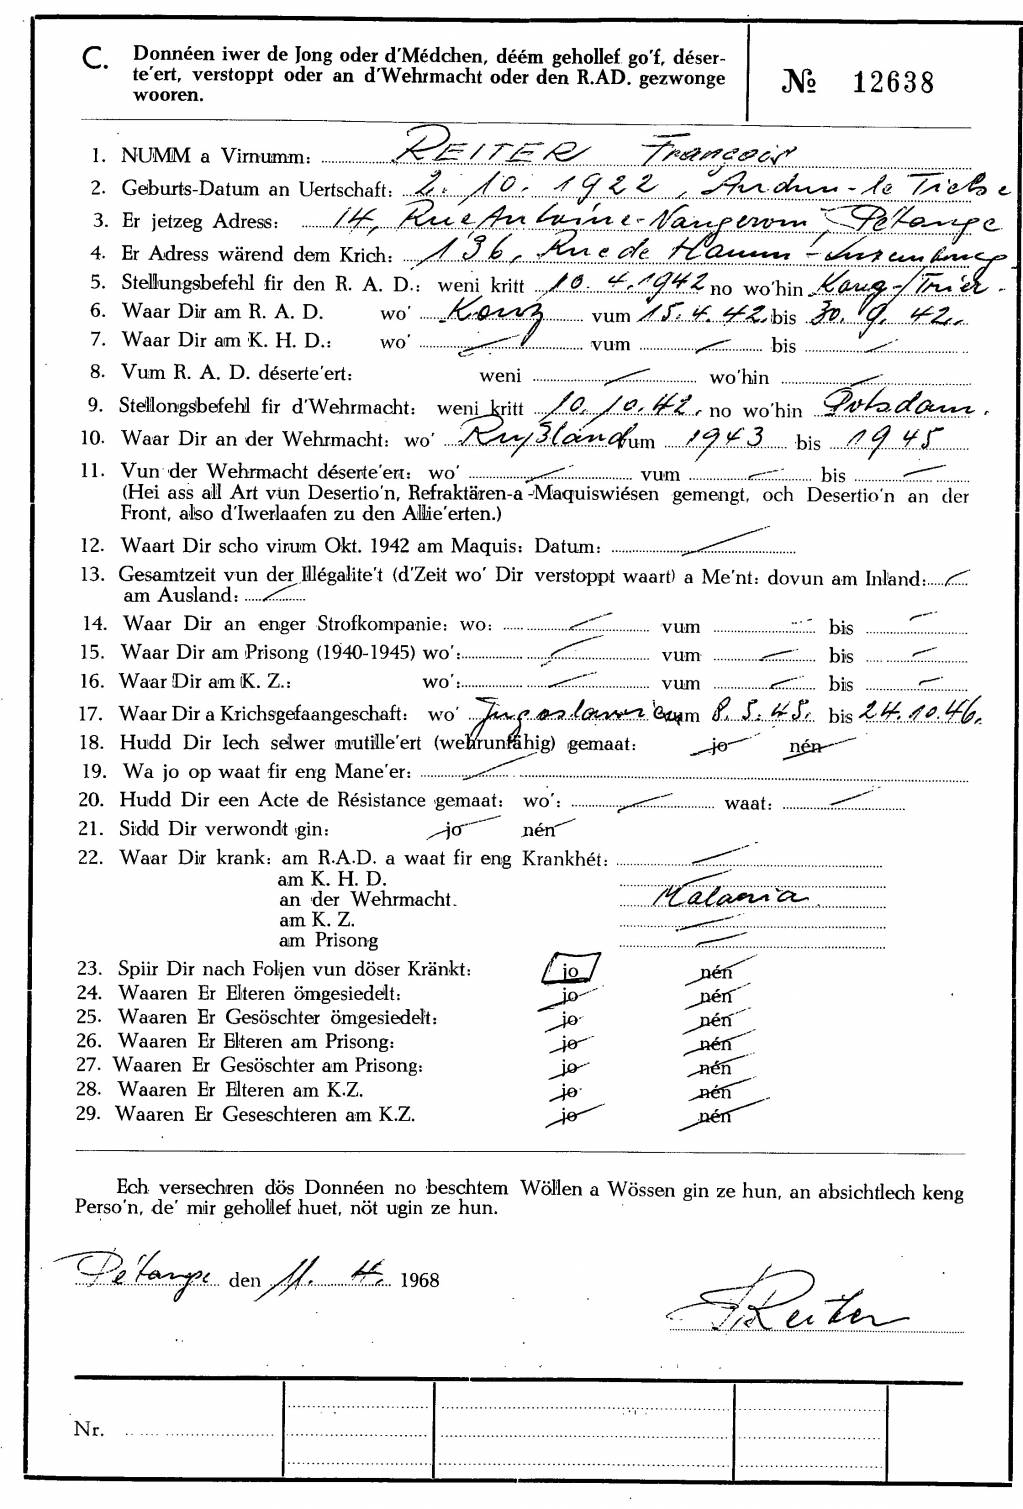 C. Donnéen iwer de Jong oder d'Médchen, déém gehollef go'f, déser-
te'ert, verstoppt oder an d'Wehrmacht oder den R.AD. gezwonge
wooren.
№ 12638
1. NUMM a Virnumm: REITER François
2. Geburts-Datum an Uertschaft: 2. 10. 1922, Audun-le Tiche
3. Er jetzeg Adress: 14, Rue Antoine-Nangerom, Pétange
4. Er Adress wärend dem Krich: 136, Rue de Hamm - Luxembourg
5. Stellungsbefehl fir den R. A. D.: weni kritt 10. 4. 1942 no wo'hin Konz/Trier.
6. Waar Dir am R. A. D. wo' Konz vum 15. 4. 42. bis 30. 9. 42.
7. Waar Dir am K. H. D.: wo' vum bis
8. Vum R. A. D. déserte'ert: weni wo'hin
9. Stellongsbefehl fir d'Wehrmacht: weni kritt 10. 10. 42. no wo'hin Potsdam.
10. Waar Dir an der Wehrmacht: wo' Rußland vum 1943 bis 1945
11. Vun der Wehrmacht déserte'ert: wo' vum bis
(Hei ass all Art vun Desertio'n, Refraktären-a-Maquiswiésen gemengt, och Desertio'n an der
Front, also d'Iwerlaafen zu den Allie'erten.)
12. Waart Dir scho virum Okt. 1942 am Maquis: Datum:
13. Gesamtzeit vun der Illégalite't (d'Zeit wo' Dir verstoppt waart) a Me'nt: dovun am Inland:
am Ausland:
14. Waar Dir an enger Strofkompanie: wo: vum bis
15. Waar Dir am Prisong (1940-1945) wo': vum bis
16. Waar Dir am K. Z.: wo': vum bis
17. Waar Dir a Krichsgefaangeschaft: wo' Jugoslawien vum 8. 5. 45. bis 24. 10. 46.
18. Hudd Dir Iech selwer mutille'ert (wehrunfähig) gemaat: jo nén
19. Wa jo op waat fir eng Mane'er:
20. Hudd Dir een Acte de Résistance gemaat: wo': waat:
21. Sidd Dir verwondt gin: jo nén
22. Waar Dir krank: am R.A.D. a waat fir eng Krankhét:
am K. H. D.
an der Wehrmacht. Malaria
am K. Z.
am Prisong
23. Spiir Dir nach Foljen vun döser Kränkt: jo nén
24. Waaren Er Elteren ömgesiedelt: jo nén
25. Waaren Er Gesöschter ömgesiedelt: jo nén
26. Waaren Er Elteren am Prisong: jo nén
27. Waaren Er Gesöschter am Prisong: jo nén
28. Waaren Er Elteren am K.Z. jo nén
29. Waaren Er Geseschteren am K.Z. jo nén
Ech versechren dös Donnéen no beschtem Wöllen a Wössen gin ze hun, an absichtlech keng
Perso'n, de' mir gehollef huet, nöt ugin ze hun.
Pétange den 11. 4. 1968
F. Reiter
Nr.